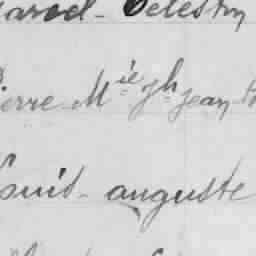 Marcel - Célestin
Pierre Mie Jph Jean
Louis - auguste